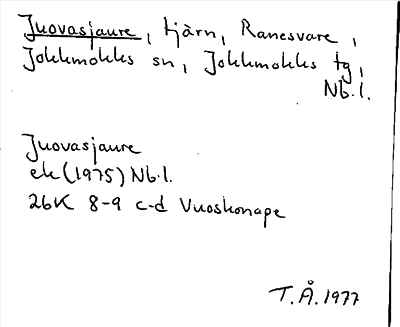 Juovasjaure, tjärn, Ranesvare,
Jokkmokks sn, Jokkmokks tg,
Nb.l.
Juovasjaure
ek (1975) Nb.l.
26K 8-9 c-d Vuoskonape
T.Å. 1977